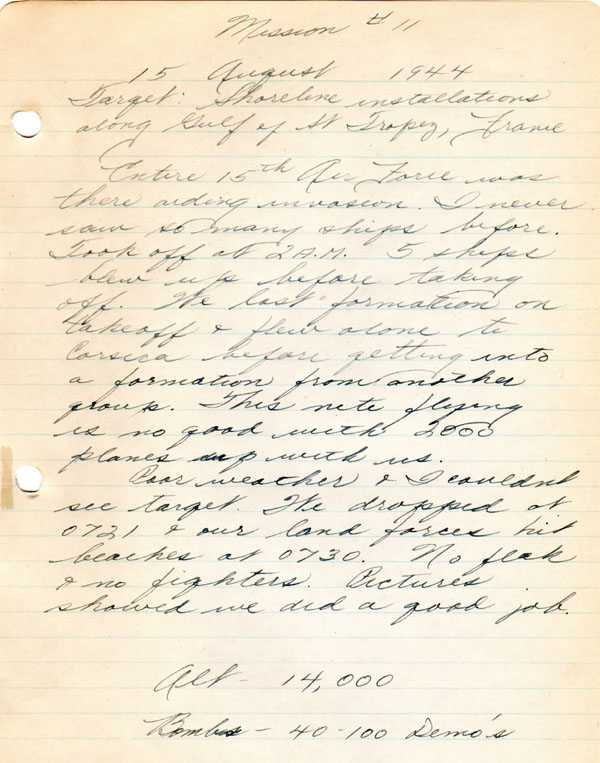 Mission #11
15 August 1944
Target: Shoreline installations
along Gulf of St Tropez, France
Entire 15th Air Force was
there aiding invasion. I never
saw so many ships before.
Took off at 2 A.M. 5 ships
blew up before taking
off. We lost formation on
takeoff & flew alone to
Corsica before getting into
a formation from another
group. This nite flying
is no good with 2000
planes up with us.
Poor weather & I couldnt
see target. We dropped at
0721 & our land forces hit
beaches at 0730. No flak
& no fighters. Pictures
showed we did a good job.
Alt - 14,000
Bombs - 40-100 Demo's